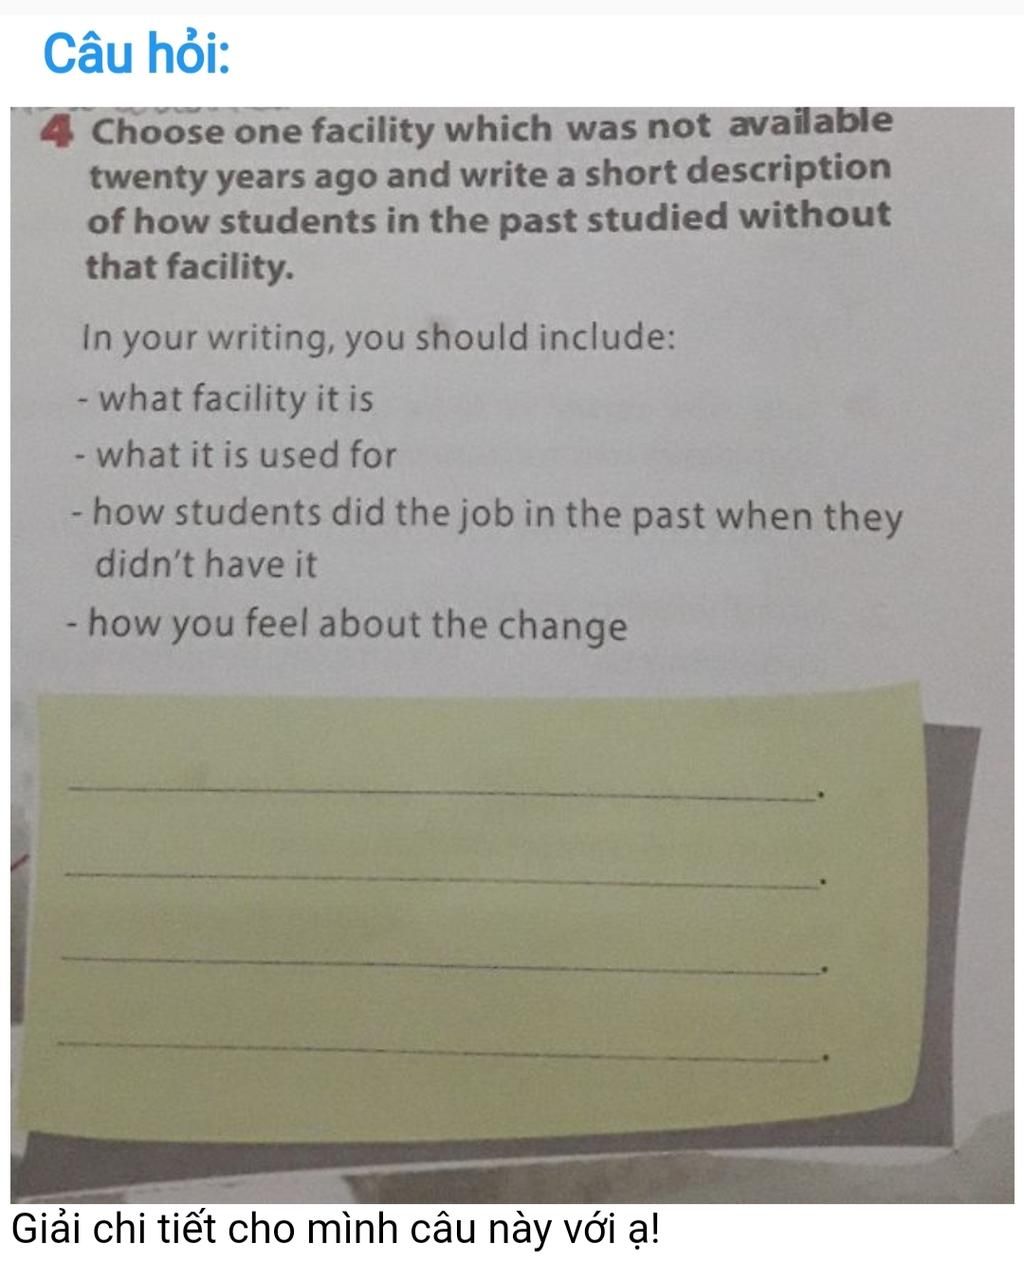 Câu hỏi:
4 Choose one facility which was not available
twenty years ago and write a short description
of how students in the past studied without
that facility.
In your writing, you should include:
- what facility it is
- what it is used for
- how students did the job in the past when they
didn't have it
- how you feel about the change
Giải chi tiết cho mình câu này với ạ!